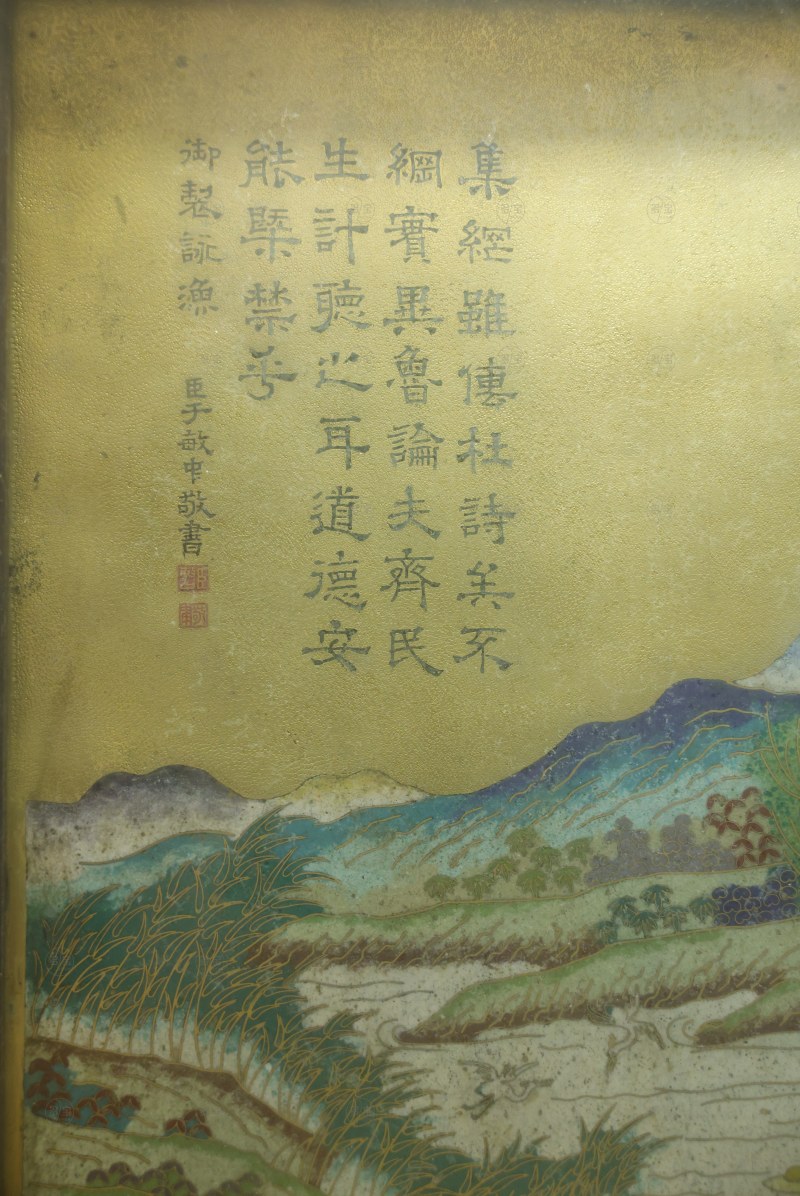 集網雖傳杜詩美不
綱實異魯論夫齊民
生計聽之耳道德安
能槩禁乎
御製詠漁
臣于敏中敬書